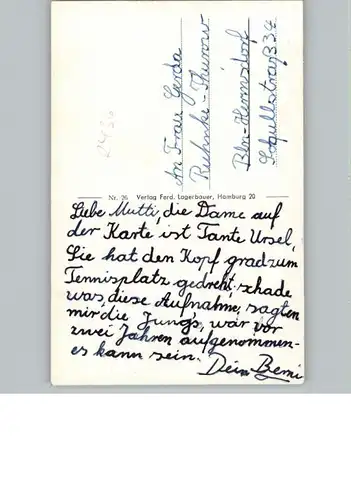 An Frau Gerda
Ruhnke-Thurow
Bln-Hermsdorf
33c
Nr. 26 Verlag Ferd. Lagerbauer, Hamburg 20
Liebe Mutti, die Dame auf
der Karte ist Tante Ursel,
Sie hat den Kopf grad zum
Tennisplatz gedreht, schade
was, diese Aufnahme, sagten
mir die Jungs, wär vor
zwei Jahren aufgenommen-
es kann sein. Dein Berni